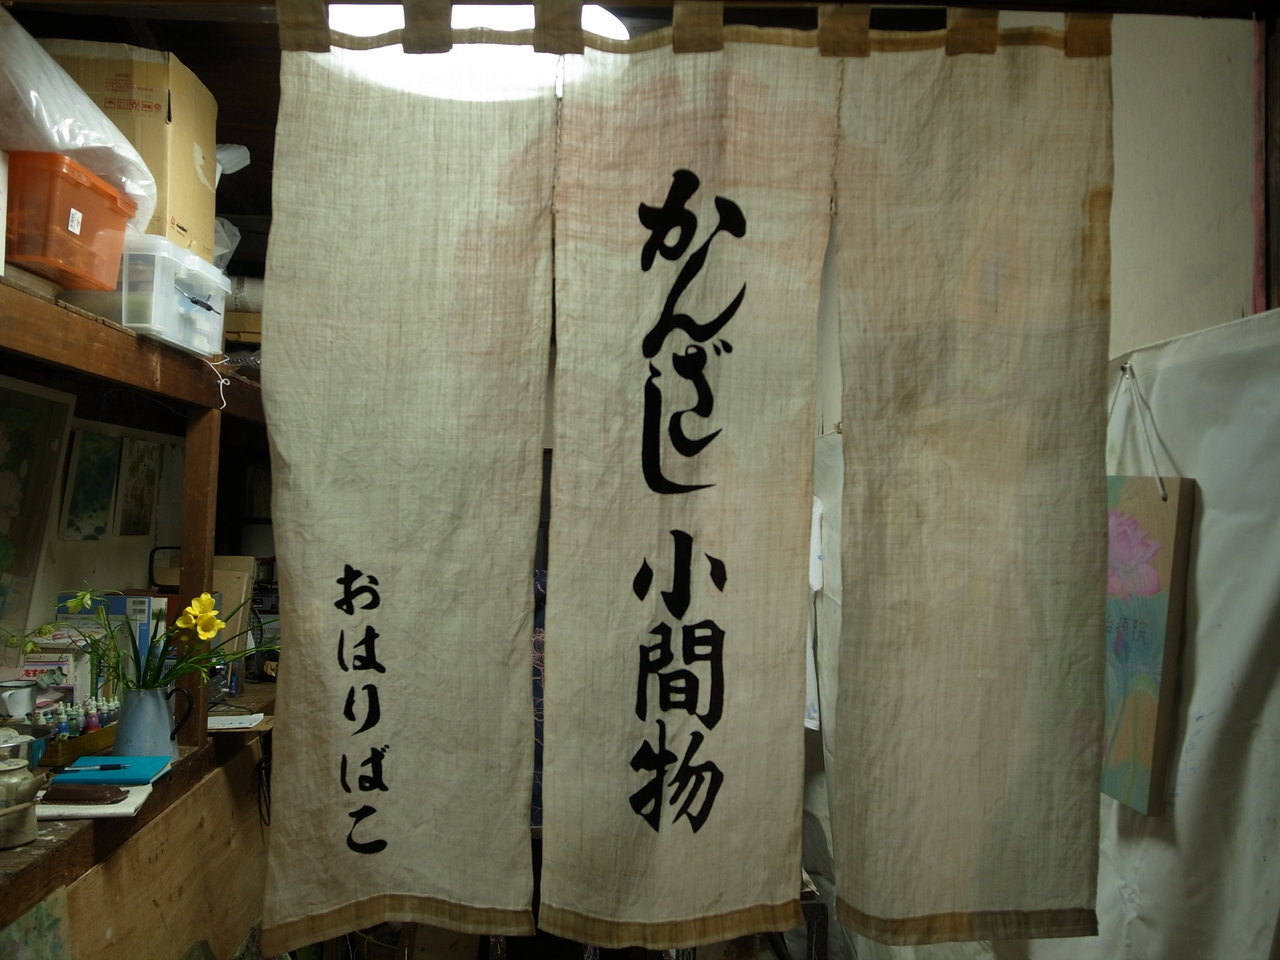 かんざし 小間物
おはりばこ
治療院